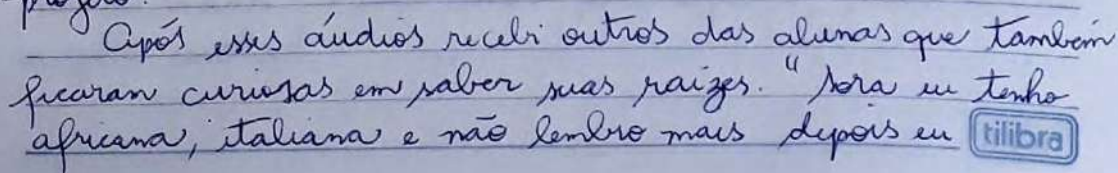 Após esses áudios recebi outros das alunas que também
ficaram curiosas em saber suas raízes. "Sora eu tenho
africana, italiana e não lembro mais depois eu tilibra